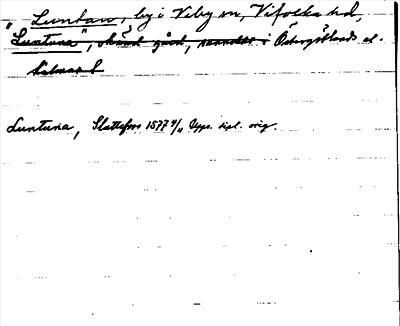 Luntan, by i Viby sn, Vifolka hd,
"Luntuna", okänd gård, sannolikt i Östergötlands el.
Kalmar l
Luntuna, Slattefors 1577 4/11 Upps. dipl. orig.